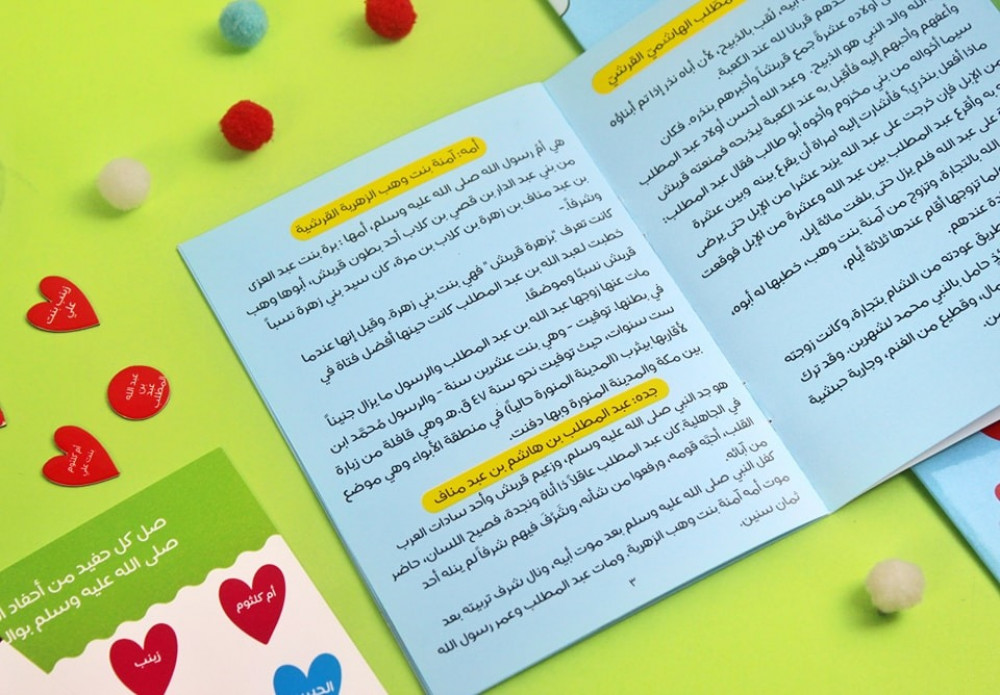 المطلب الهاشميّ القرشيّ
لقب بالذبيح، لأن أباه نذر إذا تم أبناؤه
قربانا لله عند الكعبة.
أولاده عشرة جمع قريشاً وأخبرهم بنذره. فكان
الله والد النبي هو الذبيح. وعبد الله أحسن أولاد عبد المطلب
وأعفهم وأحبهم إليه فأقبل به عند الكعبة ليذبحه فمنعته قريش
سيما أخواله من بني مخزوم وأخوه أبو طالب فقال عبد المطلب:
ماذا أفعل بنذري؟ فأشارت إليه امرأة أن يقرع بينه وبين عشرة
من الإبل فإن خرجت على عبد الله يزيد عشرا من الإبل حتى يرضى
به وأقرع عبد المطلب بين عبد الله وعشرة من الإبل فوقعت
على عبد الله فلم يزل حتى بلغت مائة إبل.
الله بالتجارة، وتزوج من آمنة بنت وهب، خطبها له أبوه،
لما تزوجها أقام عندها ثلاثة أيام,
عندهم.
طريق عودته من الشام بتجارة، وكانت زوجته
حامل بالنبي محمد لشهرين، وقد ترك
وقطيع من الغنم، وجارية حبشية
أمه: آمنة بنت وهب الزهرية القرشية
هي أمّ رسول الله صلى الله عليه وسلم، أمها: برة بنت عبد العزى
من بني عبد الدار بن قصي بن كلاب أحد بطون قريش، أبوها وهب
بن عبد مناف بن زهرة بن كلاب بن مرة، كان سيد بني زهرة نسباً
وشرفاً.
كانت تعرف "بزهرة قريش" فهي بنت بني زهرة، وقيل إنها عندما
خطبت لعبد الله بن عبد المطلب كانت حينها أفضل فتاة في
قريش نسبًا وموضعًا.
مات عنها زوجها عبد الله بن عبد المطلب والرسول ما يزال جنيناً
في بطنها. توفيت - وهي بنت عشرين سنة - والرسول مُحمَّد ابن
ست سنوات، حيث توفيت نحو سنة ٤٧ ق.هـ وهي في قافلة من زيارة
لأقاربها بيثرب (المدينة المنورة حالياً) في منطقة الأبواء وهي موضع
بين مكة والمدينة المنورة وبها دفنت.
جده: عبد المطلب بن هاشم بن عبد مناف
هو جد النبي صلى الله عليه وسلم، وزعيم قريش وأحد سادات العرب
في الجاهلية كان عبد المطلب عاقلاً ذا أناة ونجدة، فصيح اللسان، حاضر
القلب، أحبّه قومه، ورفعوا من شأنه، وشَرُفَ فيهم شرفاً لم ينله أحد
من آبائه.
كفل النبي صلى الله عليه وسلم بعد موت أبيه، ونال شرف تربيته بعد
موت أمه آمنة بنت وهب الزهرية. ومات عبد المطلب وعمر رسول الله
ثمان سنين.
٣
زينب بنت
علي
عبد الله
بن
عبد
المطلب
أم كلثوم
بنت علي
صل كل حفيد من أحفاد
صلى الله عليه وسلم
أم كلثوم
زينب